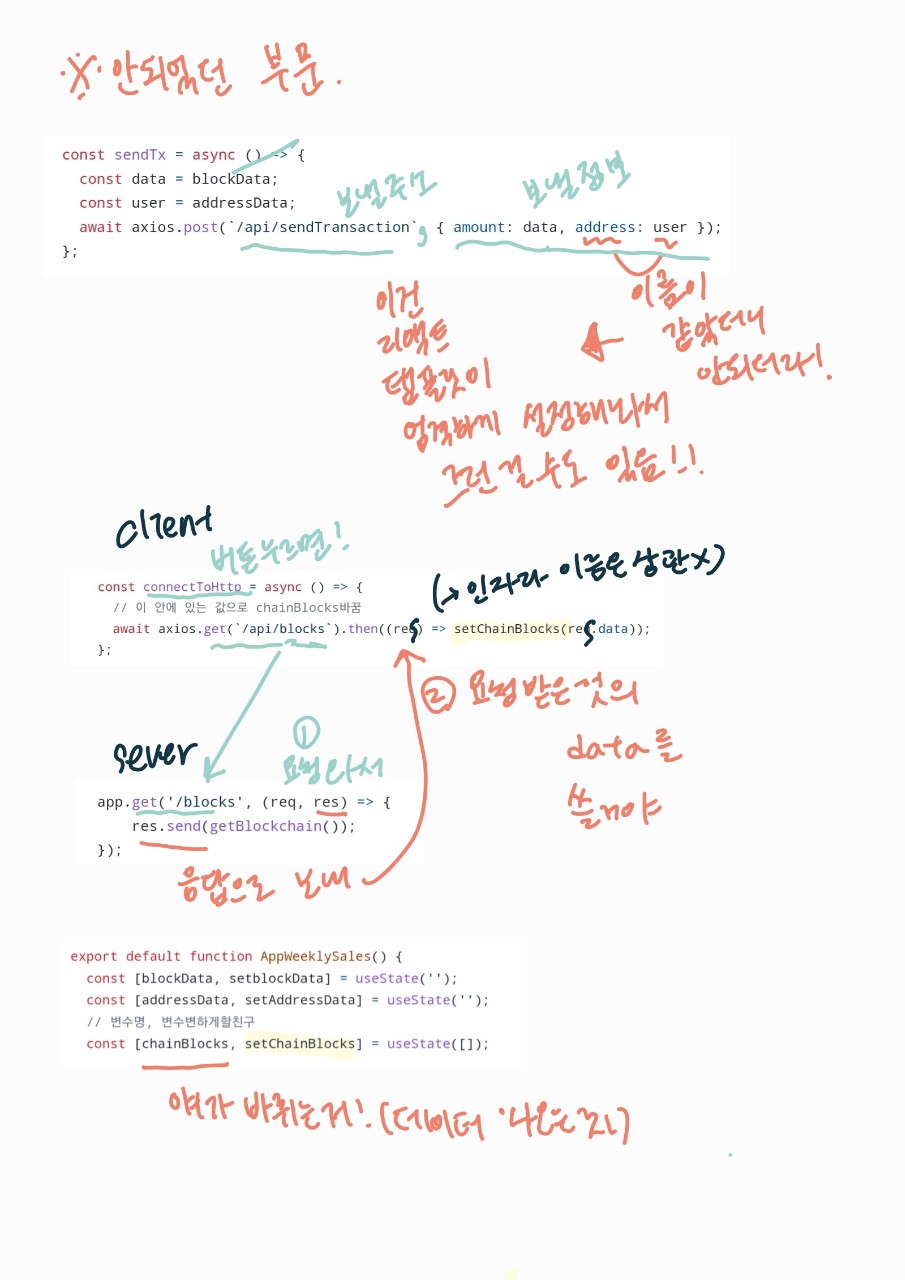 ※ 안되었던 부분.
const sendTx = async () => {
const data = blockData;
const user = addressData;
보낼주소
보낼정보
await axios.post(`/api/sendTransaction`, { amount: data, address: user });
};
이름이
같았더니
안되더라!.
이건
리액트
템플릿이
엄격하게 설정해놔서
그런걸 수도 있음!!.
client
버튼누르면!
const connectToHttp = async () => {
// 이 안에 있는 값으로 chainBlocks바꿈
(→ 인자라 이름은 상관X)
await axios.get(`/api/blocks`).then((res) => setChainBlocks(res.data));
};
② 요청 받은 것의
data를
쓸거야
sever
①
요청와서
app.get('/blocks', (req, res) => {
res.send(getBlockchain());
});
응답으로 보내
export default function AppWeeklySales() {
const [blockData, setblockData] = useState('');
const [addressData, setAddressData] = useState('');
// 변수명, 변수변하게할친구
const [chainBlocks, setChainBlocks] = useState([]);
얘가 바뀌는거!.(데이터 나오는 거)